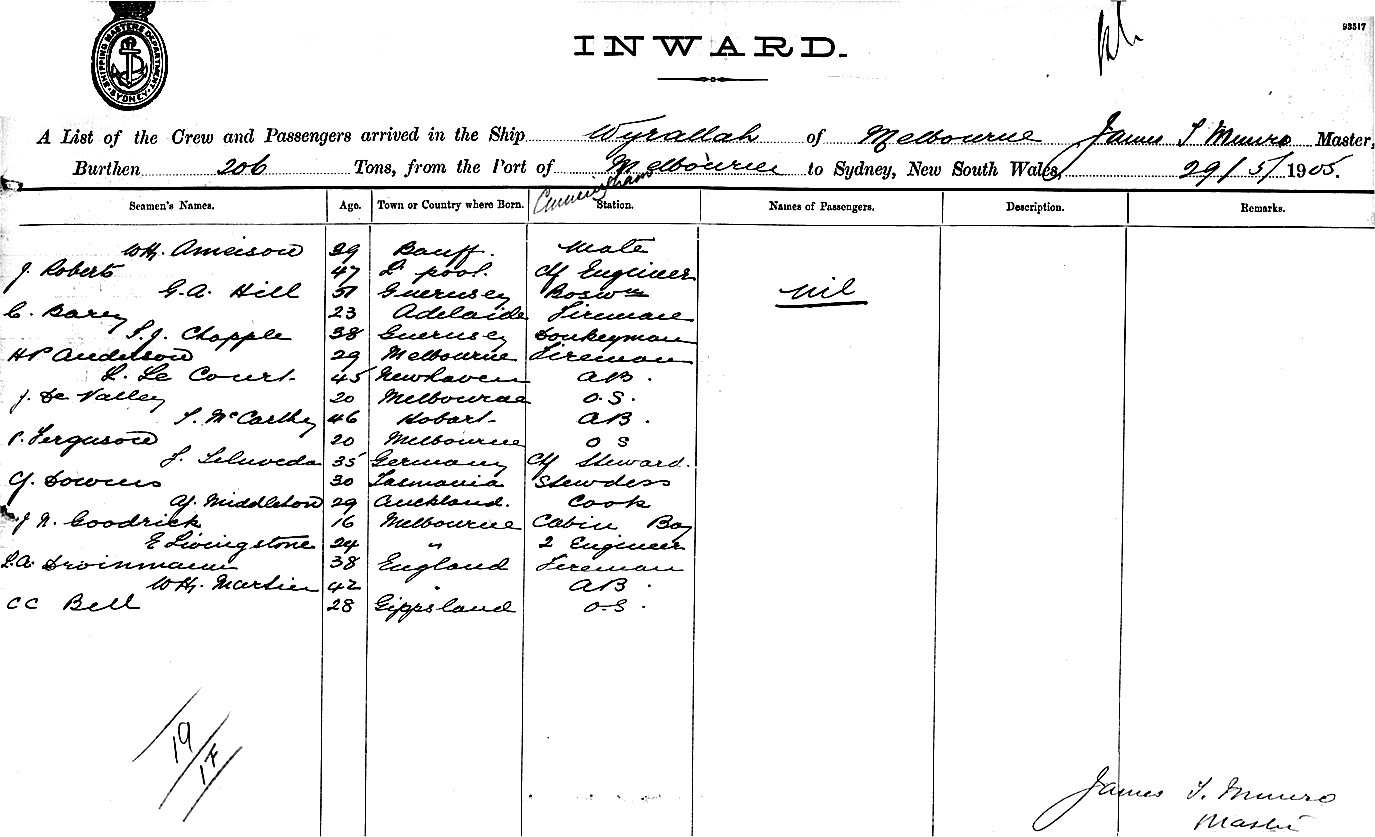 SHIPPING MASTERS DEPARTMENT SYDNEY
93517
INWARD.
A List of the Crew and Passengers arrived in the Ship Wyrallah of Melbourne James S Munro Master,
Burthen 206 Tons, from the Port of Melbourne to Sydney, New South Wales, 29/5/1905.
Cunningham
Seamen's Names. Age. Town or Country where Born. Station. Names of Passengers. Description. Remarks.
39 Banff. Mate
J. Roberts 47 L'pool. Cf Engineer
G.A. Hill 51 Guernsey Boswn nil
C. Barey 23 Adelaide Fireman
S.J. Chapple 38 Guernsey Donkeyman
HP Anderson 29 Melbourne Fireman
L. Le Court 45 Newhaven AB.
J. De Valley 20 Melbourne O.S.
McCarthy 46 Hobart AB.
P. Ferguson 20 Melbourne OS
35 Germany Cf Steward.
Downes 30 Tasmania Stewdess
Middleton 29 Auckland. Cook
J N. Goodrick 16 Melbourne Cabin Boy
E Livingstone 24 " 2 Engineer
38 England Fireman
WH. Martin 42 " AB.
CC Bell 28 Gippsland O.S.
19/17
James S. Munro
Master